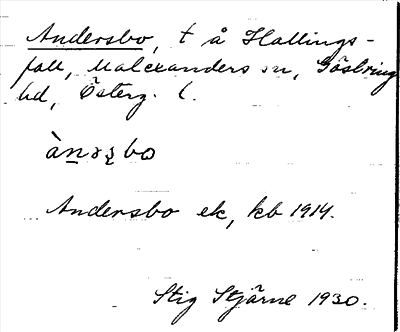 Andersbo, t å Hallings-
fall, Malexanders sn, Göstring
hd, Österg. l.
ànəʂbo
Andersbo ek, kb 1914.
Stig Stjärne 1930.